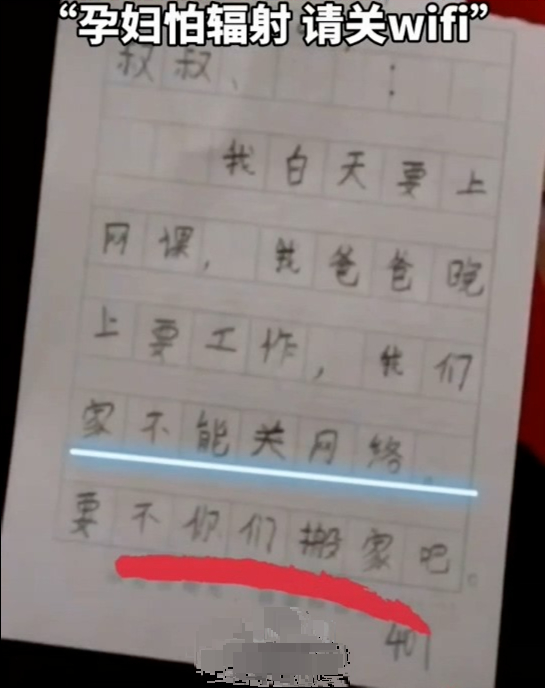 “孕妇怕辐射 请关wifi”
叔叔、：
我白天要上
网课，我爸爸晚
上要工作，我们
家不能关网络。
要不你们搬家吧。
401